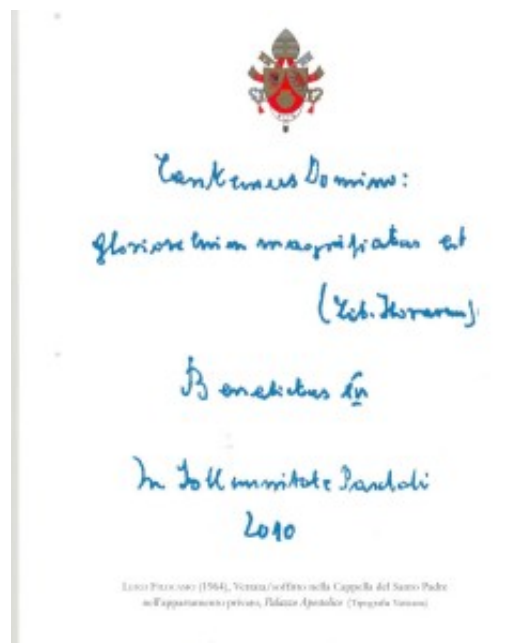 Cantemus Domino:
gloriose enim magnificatus est
(Lib. Horarum)
Benedictus
In Sollemnitate Paschali
2010
(1964), Vetrata/soffitto nella Cappella del Santo Padre
nell'appartamento privato, Palazzo Apostolico (Tipografia Vaticana)